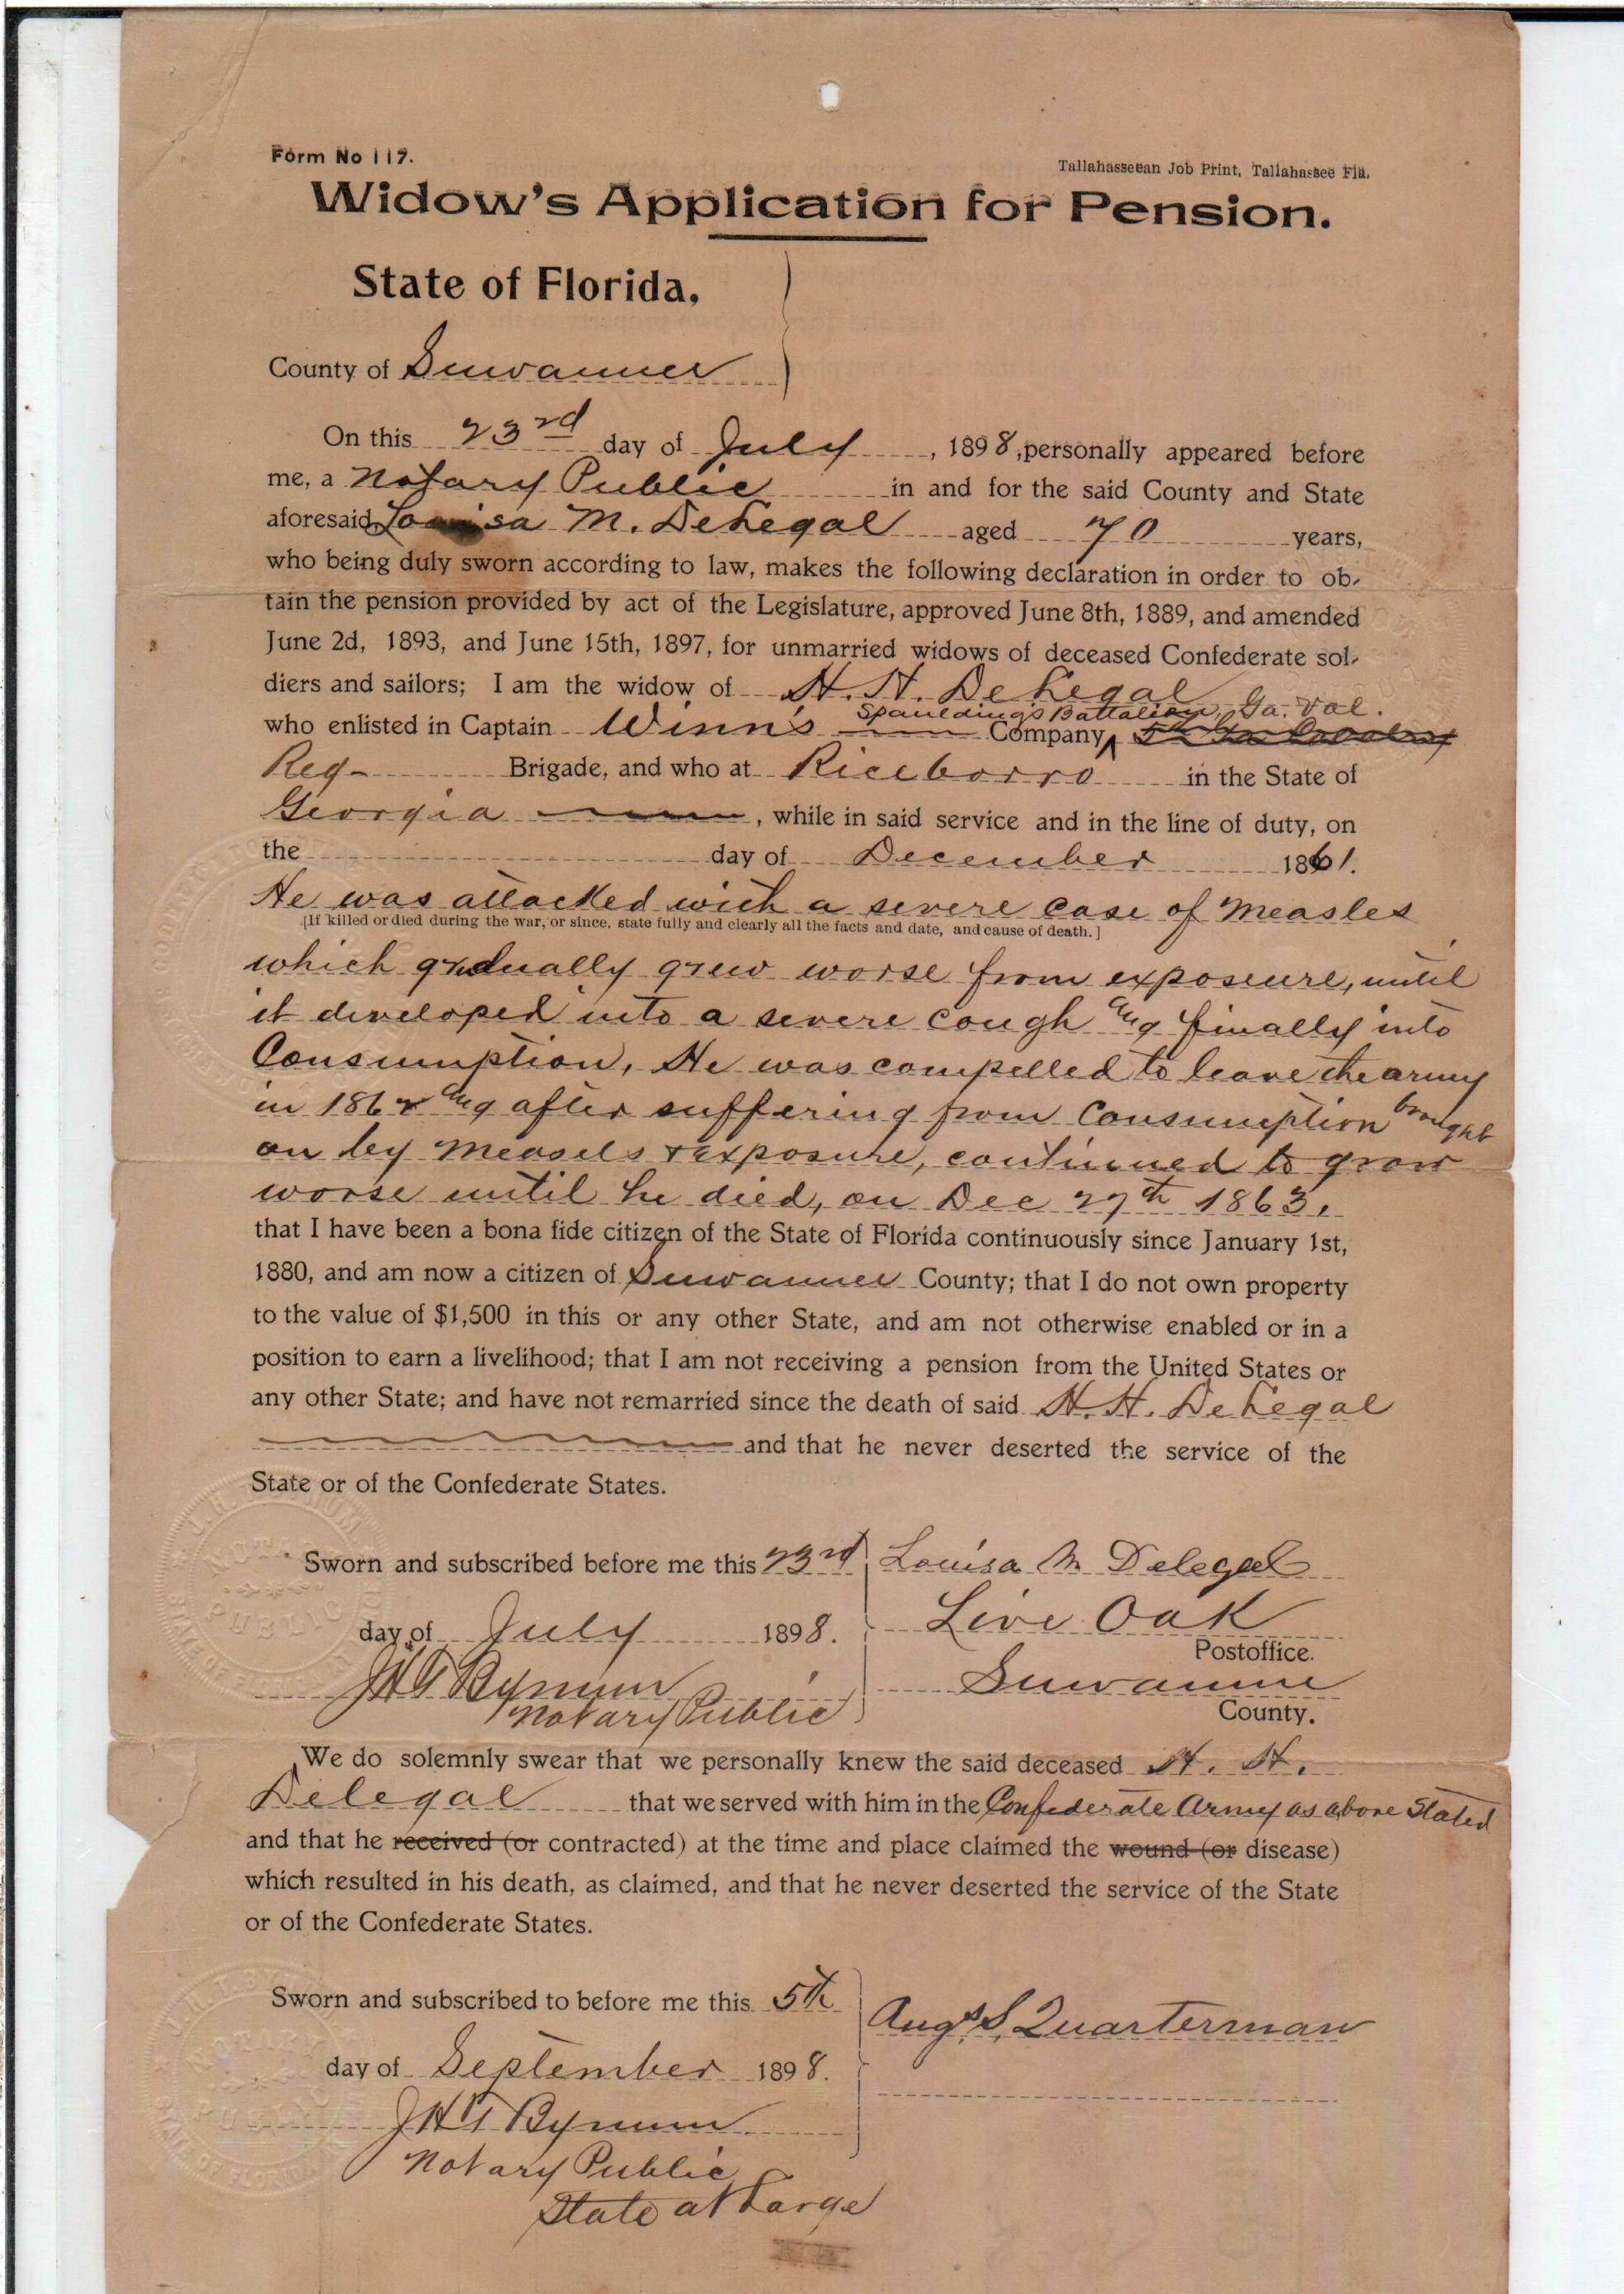 Form No 117.
Tallahasseean Job Print, Tallahassee Fla.
Widow's Application for Pension.
State of Florida,
County of Suwannee
On this 23rd day of July, 1898, personally appeared before
me, a Notary Public in and for the said County and State
aforesaid, Louisa M. DeLegal aged 70 years,
who being duly sworn according to law, makes the following declaration in order to ob-
tain the pension provided by act of the Legislature, approved June 8th, 1889, and amended
June 2d, 1893, and June 15th, 1897, for unmarried widows of deceased Confederate sol-
diers and sailors; I am the widow of H. H. DeLegal
Spaulding's Battalion, Ga. Vol.
who enlisted in Captain Winn's Company 5th Ga Cavalry
Reg Brigade, and who at Riceborro in the State of
Georgia, while in said service and in the line of duty, on
the day of December 1861.
He was attacked with a severe case of Measles
[If killed or died during the war, or since, state fully and clearly all the facts and date, and cause of death.]
which gradually grew worse from exposeure, until
it developed into a severe cough and finally into
Consumption, He was compelled to leave the army
in 1862 and after suffering from Consumption brought
on by Measels & exposure, continued to grow
worse until he died, on Dec 27th 1863.
that I have been a bona fide citizen of the State of Florida continuously since January 1st,
1880, and am now a citizen of Suwannee County; that I do not own property
to the value of $1,500 in this or any other State, and am not otherwise enabled or in a
position to earn a livelihood; that I am not receiving a pension from the United States or
any other State; and have not remarried since the death of said H. H. DeLegal
and that he never deserted the service of the
State or of the Confederate States.
Sworn and subscribed before me this 23rd
Louisa M Delegal
day of July 1898.
Live Oak
Postoffice.
JHT Bynum
Suwannee
Notary Public
County.
We do solemnly swear that we personally knew the said deceased H. H.
Delegal that we served with him in the Confederate Army as above Stated
and that he received (or contracted) at the time and place claimed the wound (or disease)
which resulted in his death, as claimed, and that he never deserted the service of the State
or of the Confederate States.
Sworn and subscribed to before me this 5th
Augs S. Quarterman
day of September 1898.
JHT Bynum
Notary Public
State at Large
NOTARY PUBLIC